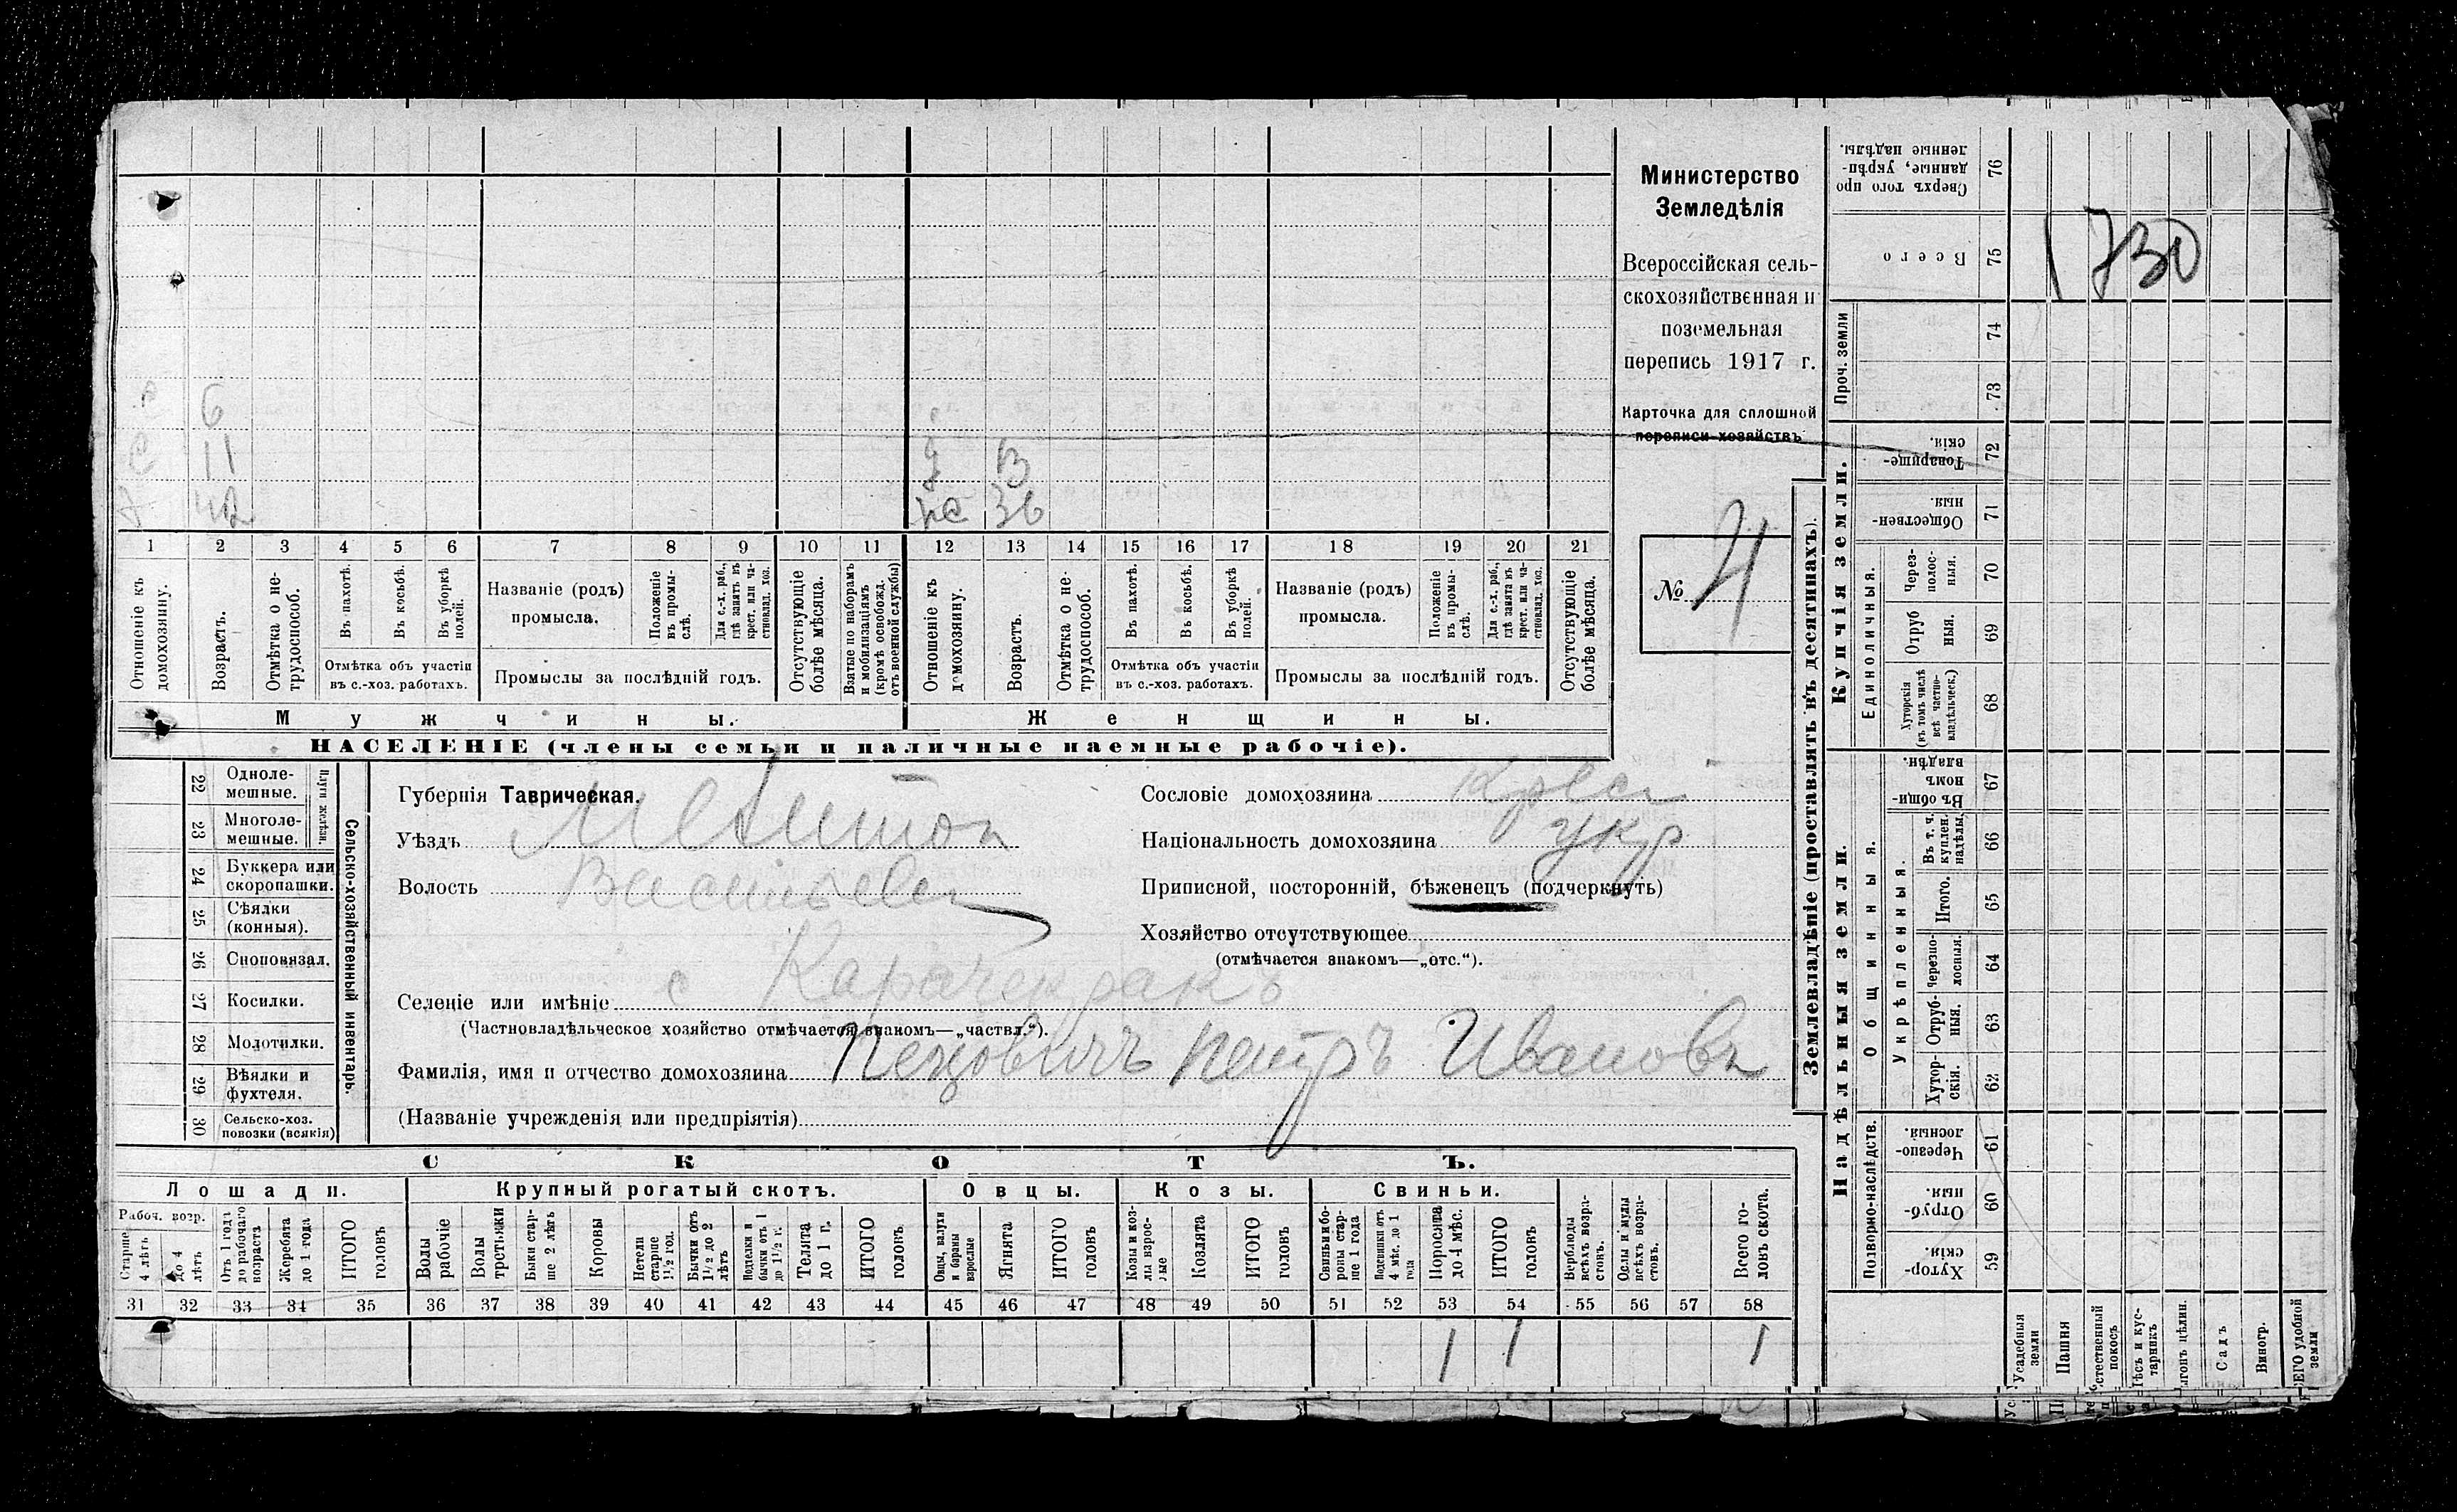 6
с 11
х 42
д 13
же 36
1 2 3 4 5 6 7 8 9 10 11 12 13 14 15 16 17 18 19 20 21
Отношеніе къ домохозяину.
Возрастъ.
Отмѣтка о нетрудоспособ.
Въ пахотѣ.
Въ косьбѣ.
Въ уборкѣ полей.
Отмѣтка объ участіи
въ с.-хоз. работахъ.
Названіе (родъ)
промысла.
Положеніе въ промыслѣ.
Для с.-х. раб., гдѣ занятъ въ крест. или частновлад. хоз.
Промыслы за послѣдній годъ.
Отсутствующіе болѣе мѣсяца.
Взятые по наборамъ и мобилизаціямъ (кромѣ освобожд. отъ военной службы)
Отношеніе къ домохозяину.
Возрастъ.
Отмѣтка о нетрудоспособ.
Въ пахотѣ.
Въ косьбѣ.
Въ уборкѣ полей.
Отмѣтка объ участіи
въ с.-хоз. работахъ.
Названіе (родъ)
промысла.
Положеніе въ промыслѣ.
Для с.-х. раб., гдѣ занята въ крест. или частновлад. хоз.
Промыслы за послѣдній годъ.
Отсутствующіе болѣе мѣсяца.
Мужчины.
Женщины.
НАСЕЛЕНІЕ (члены семьи и наличные наемные рабочіе).
Министерство
Земледѣлія
Всероссійская сель-
скохозяйственная и
поземельная
перепись 1917 г.
Карточка для сплошной
переписи хозяйствъ
№ 4
22 Одноле-
мешные.
23 Многоле-
мешные.
Плуги желѣзн.
24 Буккера или
скоропашки.
25 Сѣялки
(конныя).
26 Сноповязал.
27 Косилки.
28 Молотилки.
29 Вѣялки и
фухтеля.
30 Сельско-хоз.
повозки (всякія)
Сельско-хозяйственный инвентарь.
Губернія Таврическая.
Уѣздъ Мелитоп
Волость Васильев
Селеніе или имѣніе с Карачекракъ
(Частновладѣльческое хозяйство отмѣчается знакомъ—„частвл.“).
Фамилія, имя и отчество домохозяина Пенцовичъ Петръ Ивановъ
(Названіе учрежденія или предпріятія)
Сословіе домохозяина крест
Національность домохозяина укр
Приписной, посторонній, бѣженецъ (подчеркнуть)
Хозяйство отсутствующее
(отмѣчается знакомъ—„отс.“).
СКОТЪ.
Лошади. Крупный рогатый скотъ. Овцы. Козы. Свиньи.
Рабоч. возр.
Старше 4 лѣтъ
до 4 лѣтъ
Отъ 1 года до рабочаго возраста
Жеребята до 1 года
ИТОГО головъ
Волы рабочіе
Волы третьяки
Быки старше 2 лѣтъ
Коровы
Нетели старше 1½ год.
Бычки отъ 1½ до 2 лѣтъ
Поделки и бычки отъ 1 до 1½ г.
Телята до 1 г.
ИТОГО головъ
Овцы, валухи и бараны взрослые
Ягнята
ИТОГО головъ
Козы и козлы взрослые
Козлята
ИТОГО головъ
Свиньи и боровы старше 1 года
Подсвинки отъ 4 мѣс. до 1 года
Поросята до 4 мѣс.
ИТОГО головъ
Верблюды всѣхъ возрастовъ.
Ослы и мулы всѣхъ возрастовъ.
Всего головъ скота.
31 32 33 34 35 36 37 38 39 40 41 42 43 44 45 46 47 48 49 50 51 52 53 54 55 56 57 58
1 1 1
Землевладѣніе (проставлять въ десятинахъ).
Купчія земли.
Надѣльныя земли.
Проч. земли
Единоличныя.
Общинныя.
Укрѣпленныя.
Подворно-наслѣдств.
76 Сверхъ того проданные, укрѣпленные надѣлы.
75 Всего
74
73
72 Товарищескія.
71 Общественныя.
70 Черезполосныя.
69 Отрубныя.
68 Хуторскія (въ томъ числѣ всѣ частновладѣльческ.)
67 Въ общинномъ владѣн.
66 Въ т. ч. куплен. надѣлы.
65 Итого.
64 Черезполосныя.
63 Отрубныя.
62 Хуторскія.
61 Черезполосный.
60 Отрубныя.
59 Хуторскія.
1730
Усадебныя земли
Пашня
Естественный покосъ
Лѣсъ и кустарникъ
Выгонъ цѣлин.
Садъ
Виногр.
ВСЕГО удобной земли